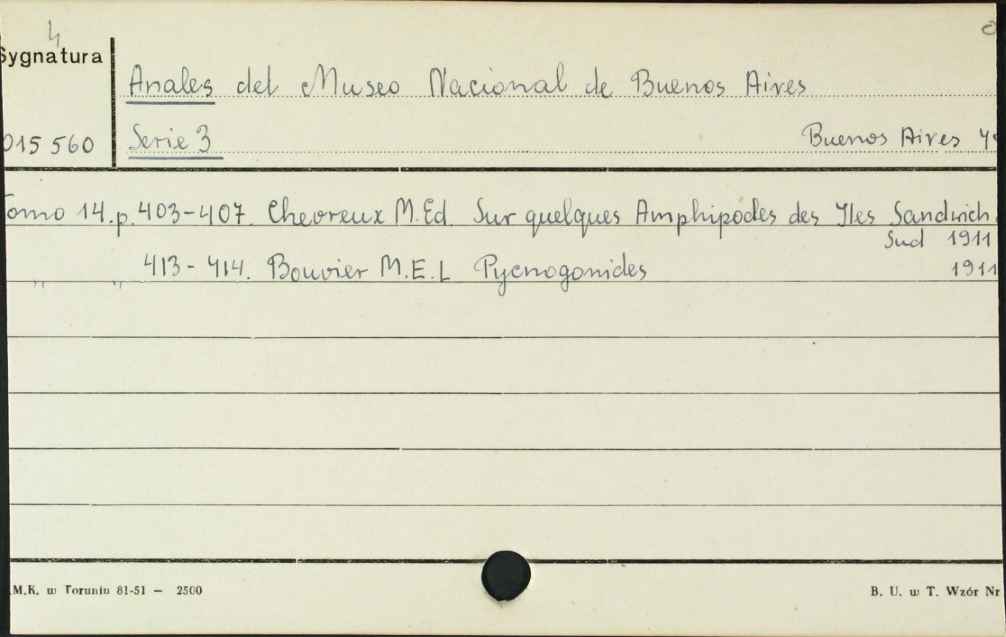 4
Sygnatura
Anales del Museo Nacional de Buenos Aires
015 560
Serie 3
Buenos Aires
Tomo 14. p. 403-407. Chevreux M.Ed Sur quelques Amphipodes des Iles Sandwich
Sud 1911
" " 413-414. Bouvier M.E.L Pycnogonides 1911
M.K. w Toruniu 81-51 — 2500
B. U. w T. Wzór Nr